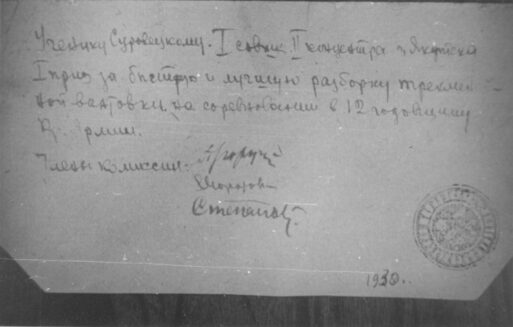 Ученику Суровецкому. I совшк. II концентра г. Якутска
I приз за быструю и лучшую разборку трехлиней-
ной винтовки, на соревновании в 12 годовщину
Кр. Армии.
Члены комиссии:
Морозов
Степанов
1930.